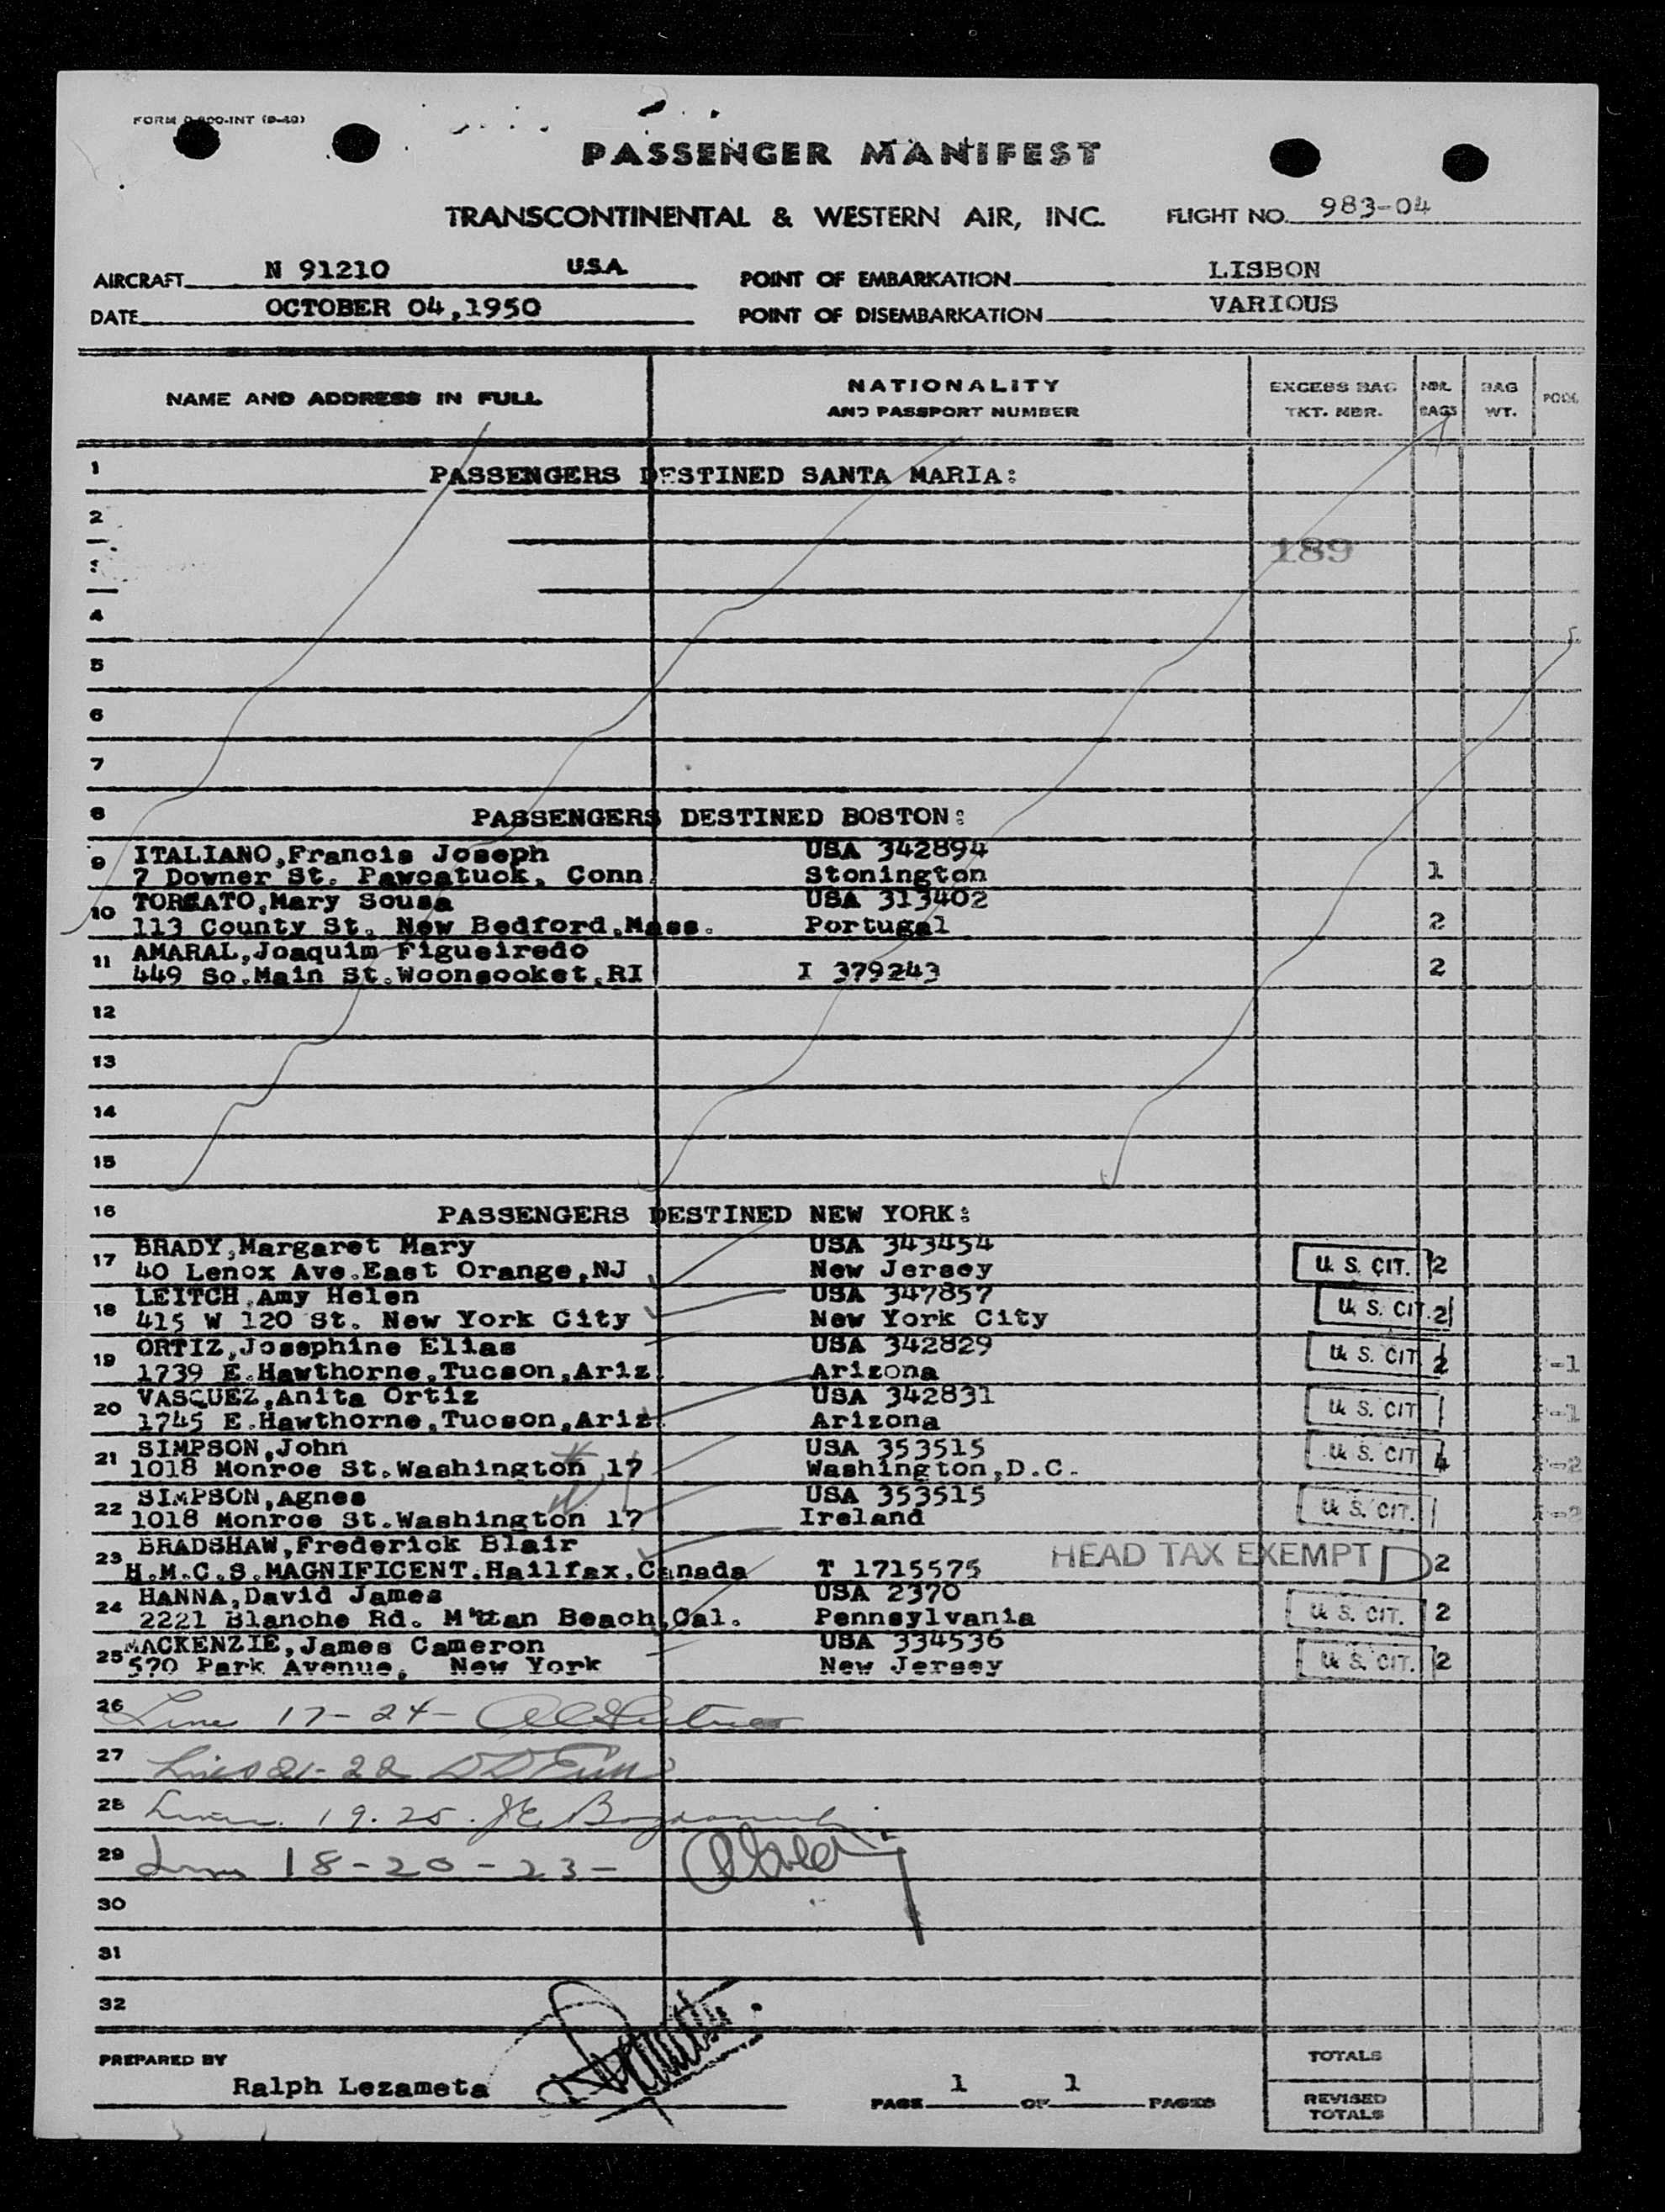 PASSENGER MANIFEST
TRANSCONTINENTAL & WESTERN AIR, INC. FLIGHT NO. 983-04
AIRCRAFT N 91210 U.S.A. POINT OF EMBARKATION LISBON
DATE OCTOBER 04,1950 POINT OF DISEMBARKATION VARIOUS
NAME AND ADDRESS IN FULL NATIONALITY AND PASSPORT NUMBER EXCESS BAG TKT. NBR. NBR. BAGS BAG WT.
1 PASSENGERS DESTINED SANTA MARIA:
2
189
4
5
6
7
8 PASSENGERS DESTINED BOSTON:
9 ITALIANO,Francis Joseph USA 342894
7 Downer St. Pawcatuck, Conn Stonington 1
10 TORGATO,Mary Sousa USA 313402
113 County St. New Bedford,Mass. Portugal 2
11 AMARAL,Joaquim Figueiredo
449 So.Main St.Woonsocket,RI I 379243 2
12
13
14
15
16 PASSENGERS DESTINED NEW YORK:
17 BRADY,Margaret Mary USA 343454
40 Lenox Ave.East Orange,NJ New Jersey U.S. CIT. 2
18 LEITCH,Amy Helen USA 347857
415 W 120 St. New York City New York City U.S. CIT. 2
19 ORTIZ,Josephine Elias USA 342829
1739 E.Hawthorne,Tucson,Ariz Arizona U.S. CIT 2
20 VASQUEZ,Anita Ortiz USA 342831
1745 E.Hawthorne,Tucson,Ariz. Arizona U.S. CIT
21 SIMPSON,John USA 353515
1018 Monroe St.Washington 17 Washington,D.C. U.S. CIT 4
22 SIMPSON,Agnes USA 353515
1018 Monroe St.Washington 17 Ireland U.S. CIT.
23 BRADSHAW,Frederick Blair
H.M.C.S.MAGNIFICENT.Hailfax,Canada T 1715575 HEAD TAX EXEMPT D 2
24 HANNA,David James USA 2370
2221 Blanche Rd. M'ttan Beach,Cal. Pennsylvania U.S. CIT. 2
25 MACKENZIE,James Cameron USA 334536
570 Park Avenue, New York New Jersey U.S. CIT. 2
26 Lines 17-24-
27 Lines 21-22
28 Lines 19.25.
29 Lines 18-20-23-
30
31
32
PREPARED BY Ralph Lezameta
PAGE 1 OF 1 PAGES
TOTALS
REVISED TOTALS